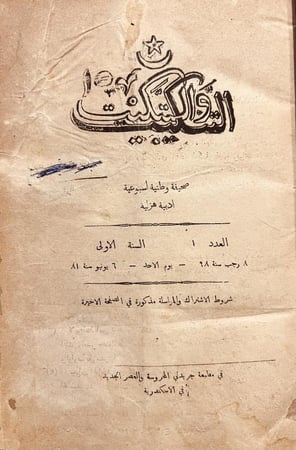 التنكيت والتبكيت
صحيفة وطنية اسبوعية
ادبية هزلية
العدد ١ السنة الاولى
٨ رجب سنة ٩٨ – يوم الاحد – ٦ يونيو سنة ٨١
شروط الاشتراك والمراسلة مذكورة في الصفحة الاخيرة
في مطبعة جريدتي المحروسة والعصر الجديد
في الاسكندرية